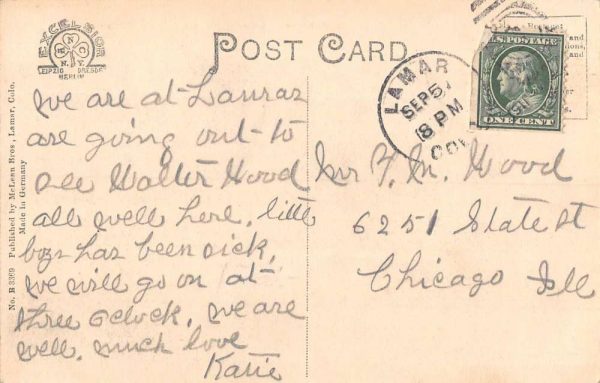 EXCELSIOR
N O C
N.Y.
LEIPZIG DRESDEN
BERLIN
POST CARD
LAMAR
SEP 5
8 PM
COLO
U.S. POSTAGE
ONE CENT
No. R 3369 Published by McLean Bros., Lamar, Colo.
Made in Germany
we are at Lauras
are going out to
see Walter Hood
all well here, little
boy has been sick,
we will go on at
three oclock, we are
well. much love
Katie
Mr F. M. Hood
6251 State St
Chicago Ill